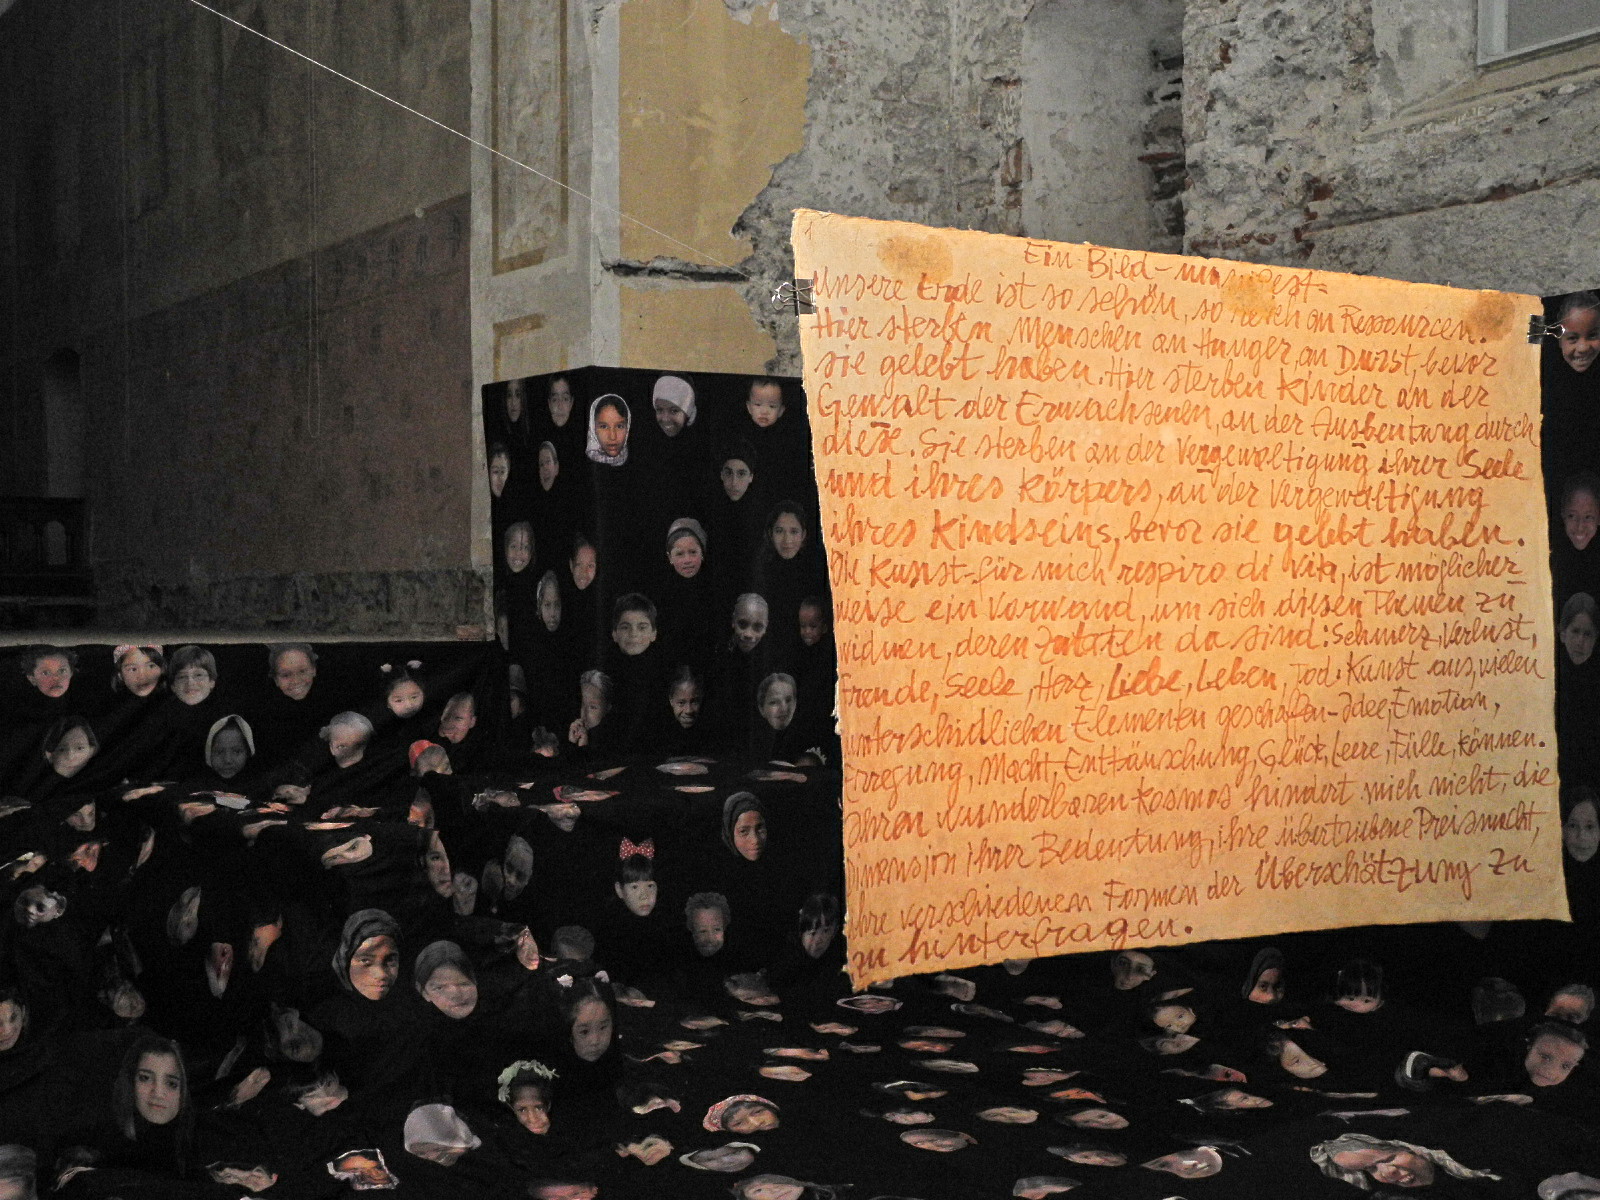 Ein Bild-manifest-
Unsere Erde ist so schön, so reich an Ressourcen.
Hier sterben Menschen an Hunger, an Durst, bevor
sie gelebt haben. Hier sterben Kinder an der
Gewalt der Erwachsenen, an der Ausbeutung durch
diese. Sie sterben an der Vergewaltigung ihrer Seele
und ihres Körpers, an der Vergewaltigung
ihres Kindseins, bevor sie gelebt haben.
Die Kunst-für mich respiro di vita, ist möglicher
weise ein Vorwand, um sich diesen Themen zu
widmen, deren Zutaten da sind: Schmerz, Verlust,
Freude, Seele, Herz, Liebe, Leben, Tod. Kunst aus vielen
unterschidlichen Elementen geschaffen-Idee, Emotion,
Erregung, Macht, Enttäuschung, Glück, Leere, Fülle, Können.
Ihren wunderbaren Kosmos hindert mich nicht, die
Dimension ihrer Bedeutung, ihre übertriebene Preismacht,
ihre verschiedenen Formen der Überschätzung zu
zu hinterfragen.